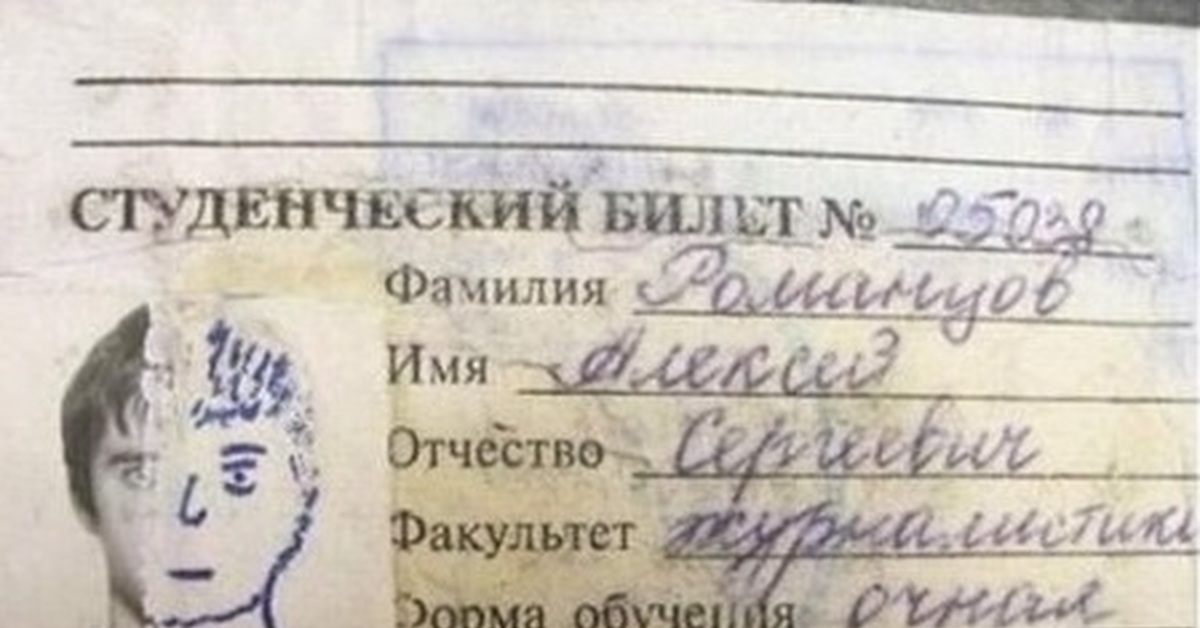 СТУДЕНЧЕСКИЙ БИЛЕТ № 05038
Фамилия Романцов
Имя Алексей
Отчество Сергеевич
Факультет журналистики
Форма обучения очная